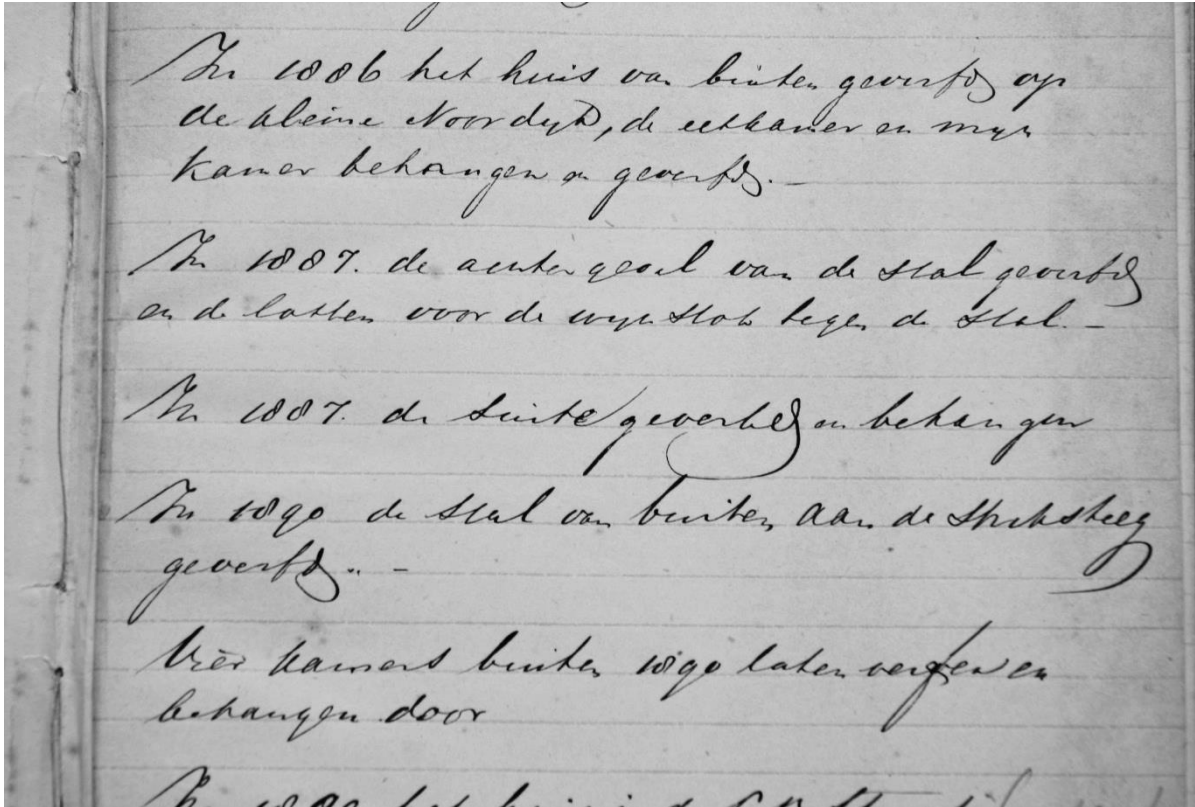 In 1886 het huis van buiten geverfd op
de kleine Noordijk, de eetkamer en mijn
kamer behangen en geverfd. –
In 1887. de achtergevel van de stal geverfd
en de latten voor de wijnstok tegen de stal. –
In 1887. de suite geverfd en behangen
In 1890 de stal van buiten aan de
geverfd.. –
Vier kamers buiten 1890 laten verfen en
behangen door
In het huis in de